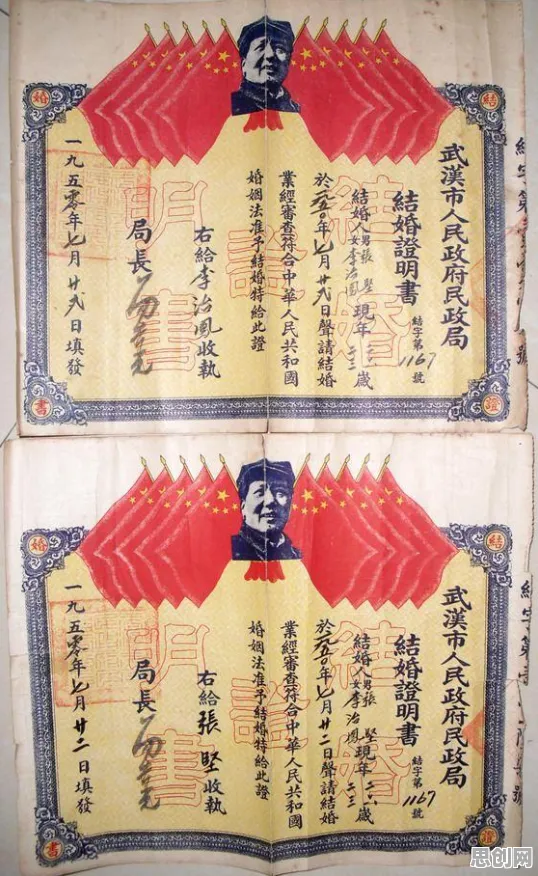 結
婚
證
書
結婚
證
明書
武漢市人民政府民政局
結婚證明書
結字第1167號
結婚人男張堅現年二八歲
女李治鳳 二三
於 年七月廿二日聲請結婚
業經審查符合中華人民共和國
婚姻法准予結婚特給此證
右給李治鳳收執
局長
一九五零年七月廿二日填發
結字第
號
結
婚
證
書
結婚
證
明書
武漢市人民政府民政局
結婚證明書
結字第1167號
結婚人男張堅現年二八歲
女李治鳳 二三
於 年七月廿二日聲請結婚
業經審查符合中華人民共和國
婚姻法准予結婚特給此證
右給張堅收執
局長
一九五零年七月廿二日填發
結字第
號
思创网